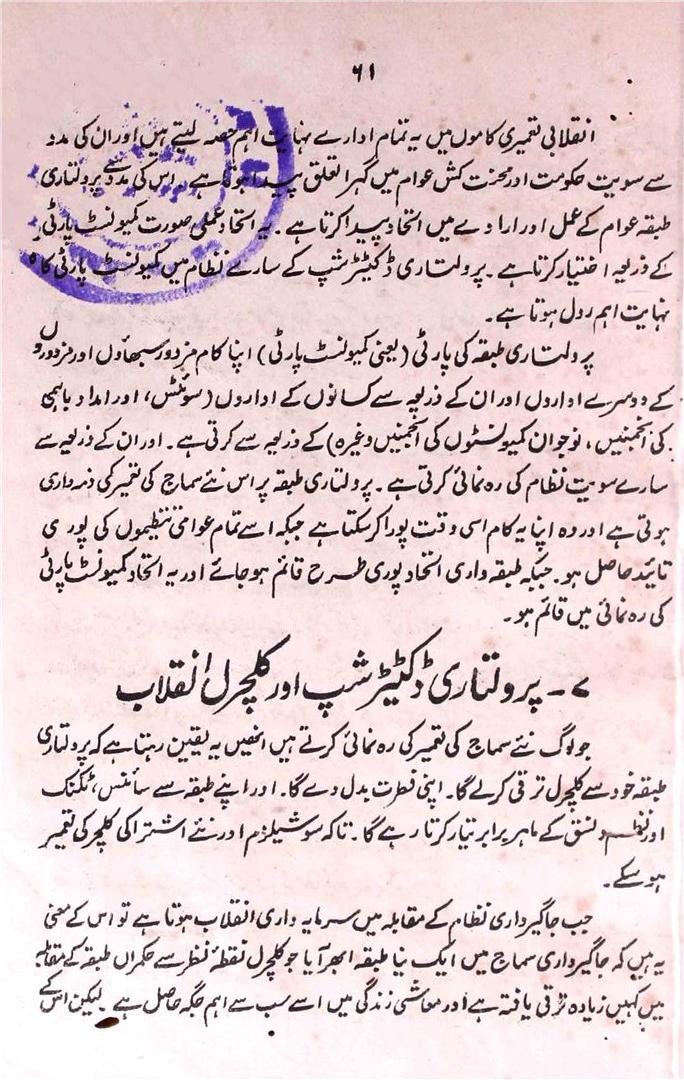 ۶۱
انقلابی تعمیری کاموں میں یہ تمام ادارے نہایت اہم حصہ لیتے ہیں اور ان کی مدد
سے سویت حکومت اور محنت کش عوام میں گہرا تعلق پیدا ہوتا ہے۔ اس کی مدد سے پرولتاری
طبقہ عوام کے عمل اور ارادے میں اتحاد پیدا کرتا ہے۔ یہ اتحاد عملی صورت کمیونسٹ پارٹی
کے ذریعہ اختیار کرتا ہے۔ پرولتاری ڈکٹیٹرشپ کے سارے نظام میں کمیونسٹ پارٹی کا
نہایت اہم رول ہوتا ہے۔
پرولتاری طبقہ کی پارٹی (یعنی کمیونسٹ پارٹی) اپنا کام مزدور سبھاؤں اور مزدوروں
کے دوسرے اداروں اور ان کے ذریعہ سے کسانوں کے اداروں (سوئٹس، اور امداد باہمی
کی انجمنیں، نوجوان کمیونسٹوں کی انجمنیں وغیرہ) کے ذریعہ سے کرتی ہے۔ اور ان کے ذریعہ سے
سارے سویت نظام کی رہ نمائی کرتی ہے۔ پرولتاری طبقہ پر اس نئے سماج کی تعمیر کی ذمہ داری
ہوتی ہے اور وہ اپنا یہ کام اسی وقت پورا کر سکتا ہے جبکہ اسے تمام عوامی تنظیموں کی پوری
تائید حاصل ہو۔ جبکہ طبقہ داری اتحاد پوری طرح قائم ہو جائے اور یہ اتحاد کمیونسٹ پارٹی
کی رہ نمائی میں قائم ہو۔
۷۔ پرولتاری ڈکٹیٹرشپ اور کلچرل انقلاب
جو لوگ نئے سماج کی تعمیر کی رہ نمائی کرتے ہیں انھیں یہ یقین رہتا ہے کہ پرولتاری
طبقہ خود سے کلچرل ترقی کرلے گا۔ اپنی فطرت بدل دے گا۔ اور اپنے طبقہ سے سائنس، ٹکنک
اور نظم و نسق کے ماہر برابر تیار کرتا رہے گا۔ تاکہ سوشیلزم اور نئے اشتراکی کلچر کی تعمیر
ہو سکے۔
جب جاگیرداری نظام کے مقابلہ میں سرمایہ داری انقلاب ہوتا ہے تو اس کے معنی
یہ ہیں کہ جاگیرداری سماج میں ایک نیا طبقہ ابھر آیا جو کلچرل نقطۂ نظر سے حکمراں طبقہ کے مقابلہ
میں کہیں زیادہ ترقی یافتہ ہے اور معاشی زندگی میں اسے سب سے اہم جگہ حاصل ہے۔ لیکن اس کے